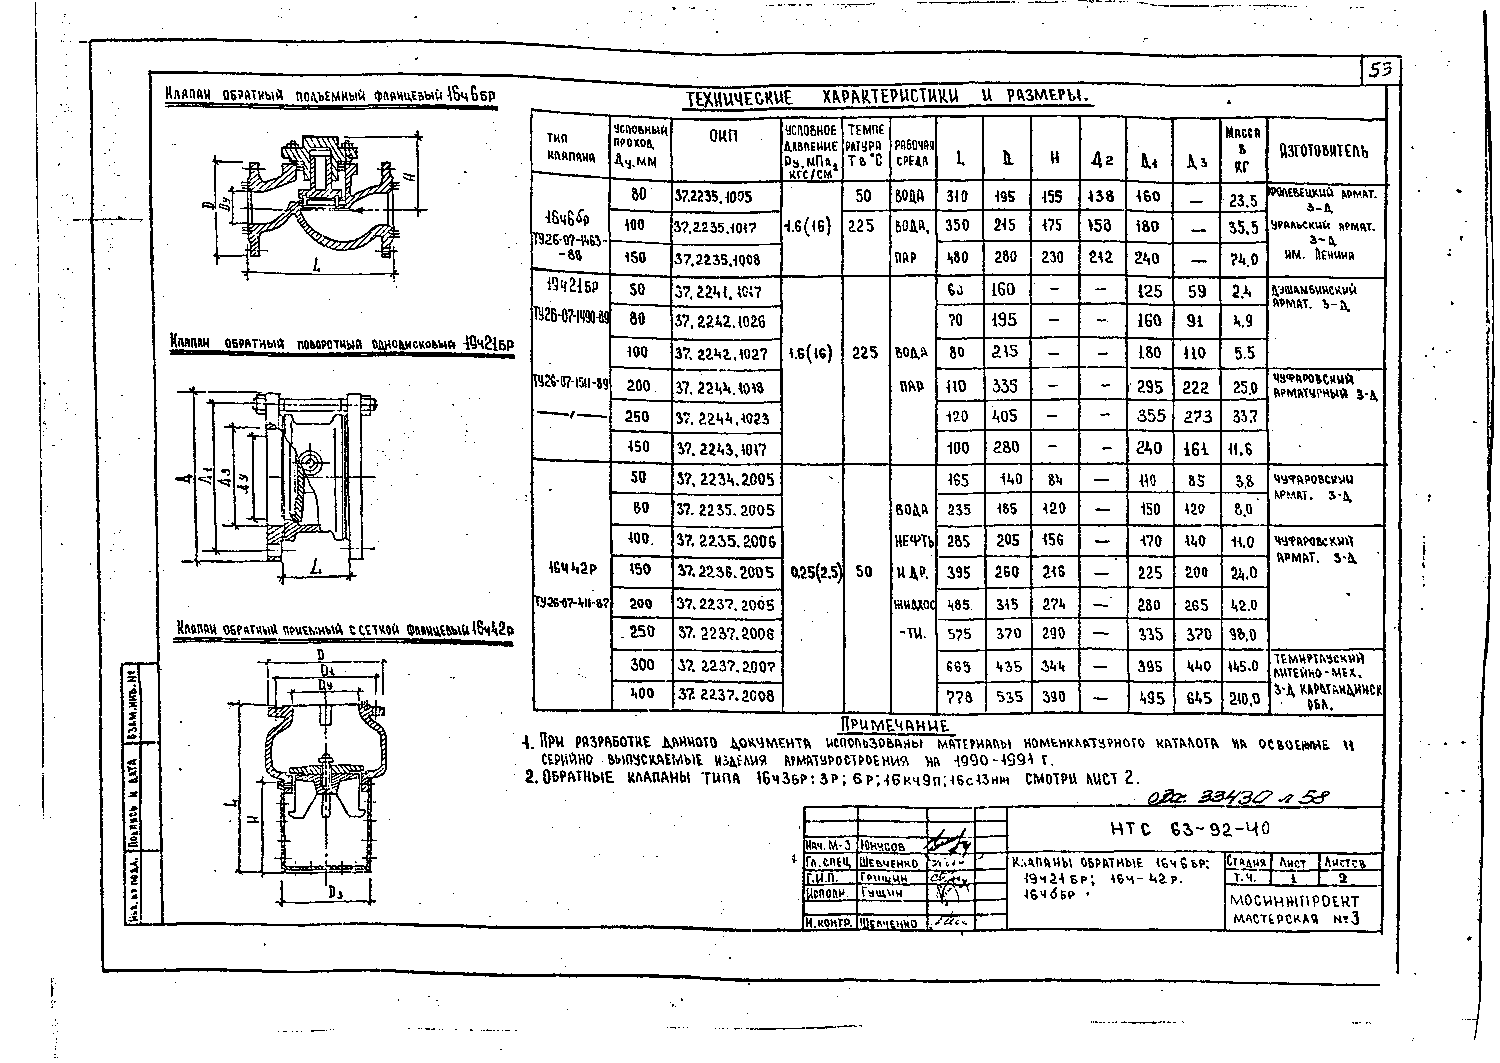 53
Клапан обратный подъемный фланцевый 16ч6бр
Технические характеристики и размеры.
D Dу H L
Клапан обратный поворотный однодисковый 19ч21бр
Д Д1 Д3 Ду L
Клапан обратный приемный с сеткой фланцевый 16ч42р
D
D1
Dу
L H
D3
Тип клапана | Условный проход, Ду, мм | ОКП | Условное давление Ру, МПа, кгс/см² | Температура Т в °С | Рабочая среда | L | Д | H | Д2 | Д1 | Д3 | Масса в кг | Изготовитель
16ч6бр ТУ26-07-1463-88 | 80 | 37.2235.1005 | 1.6(16) | 50 | вода | 310 | 195 | 155 | 138 | 160 | — | 23.5 | армат. з-д
100 | 37.2235.1017 | 225 | вода, | 350 | 215 | 175 | 158 | 180 | — | 35.5 | Уральский армат. з-д
150 | 37.2235.1008 | пар | 480 | 280 | 230 | 212 | 240 | — | 74.0 | им. Ленина
19ч21бр | 50 | 37.2241.1017 | 1.6(16) | 225 | вода пар | 60 | 160 | — | — | 125 | 59 | 2.4 | Дэшамбинский армат. з-д
ТУ26-07-1490-89 | 80 | 37.2242.1026 | 70 | 195 | — | — | 160 | 91 | 4.9
100 | 37.2242.1027 | 80 | 215 | — | — | 180 | 110 | 5.5
ТУ26-07-1511-89 | 200 | 37.2244.1018 | 110 | 335 | — | — | 295 | 222 | 25.0 | Чуфаровский арматурный з-д
—〃— | 250 | 37.2244.1023 | 120 | 405 | — | — | 355 | 273 | 33.7
150 | 37.2243.1017 | 100 | 280 | — | — | 240 | 161 | 11.6
16ч42р ТУ26-07-411-87 | 50 | 37.2234.2005 | 0.25(2.5) | 50 | вода нефть и др. жидкос-ти. | 165 | 140 | 84 | — | 110 | 85 | 3.8 | Чуфаровский армат. з-д
80 | 37.2235.2005 | 235 | 185 | 120 | — | 150 | 120 | 8.0
100 | 37.2235.2006 | 285 | 205 | 156 | — | 170 | 140 | 11.0 | Чуфаровский армат. з-д
150 | 37.2236.2005 | 395 | 260 | 216 | — | 225 | 200 | 24.0
200 | 37.2237.2005 | 485 | 315 | 274 | — | 280 | 265 | 42.0
250 | 37.2237.2006 | 575 | 370 | 290 | — | 335 | 370 | 98.0
300 | 37.2237.2007 | 663 | 435 | 344 | — | 395 | 440 | 145.0 | Темиртауский литейно-мех.
400 | 37.2237.2008 | 778 | 535 | 390 | — | 495 | 645 | 210.0 | з-д Карагандинск обл.
Примечание
1. При разработке данного документа использованы материалы номенклатурного каталога на освоенные и
серийно выпускаемые изделия арматуростроения на 1990-1991 г.
2. Обратные клапаны типа 16ч3бр; 3р; 6р; 16кч9п; 16с13нж смотри лист 2.
33430 л 58
НТС 63-92-40
Нач. М-3 Юнусов
Гл. спец. Шевченко
Г.И.П. Гришин
Исполн. Гущин
Н. контр. Шевченко
Клапаны обратные 16ч6бр;
19ч21бр; 16ч-42р.
16ч6бр
Стадия Лист Листов
Т.Ч. 1 2
МОСИНЖПРОЕКТ
мастерская №3
Взам. инв. №
Подпись и дата
Инв. № подл.